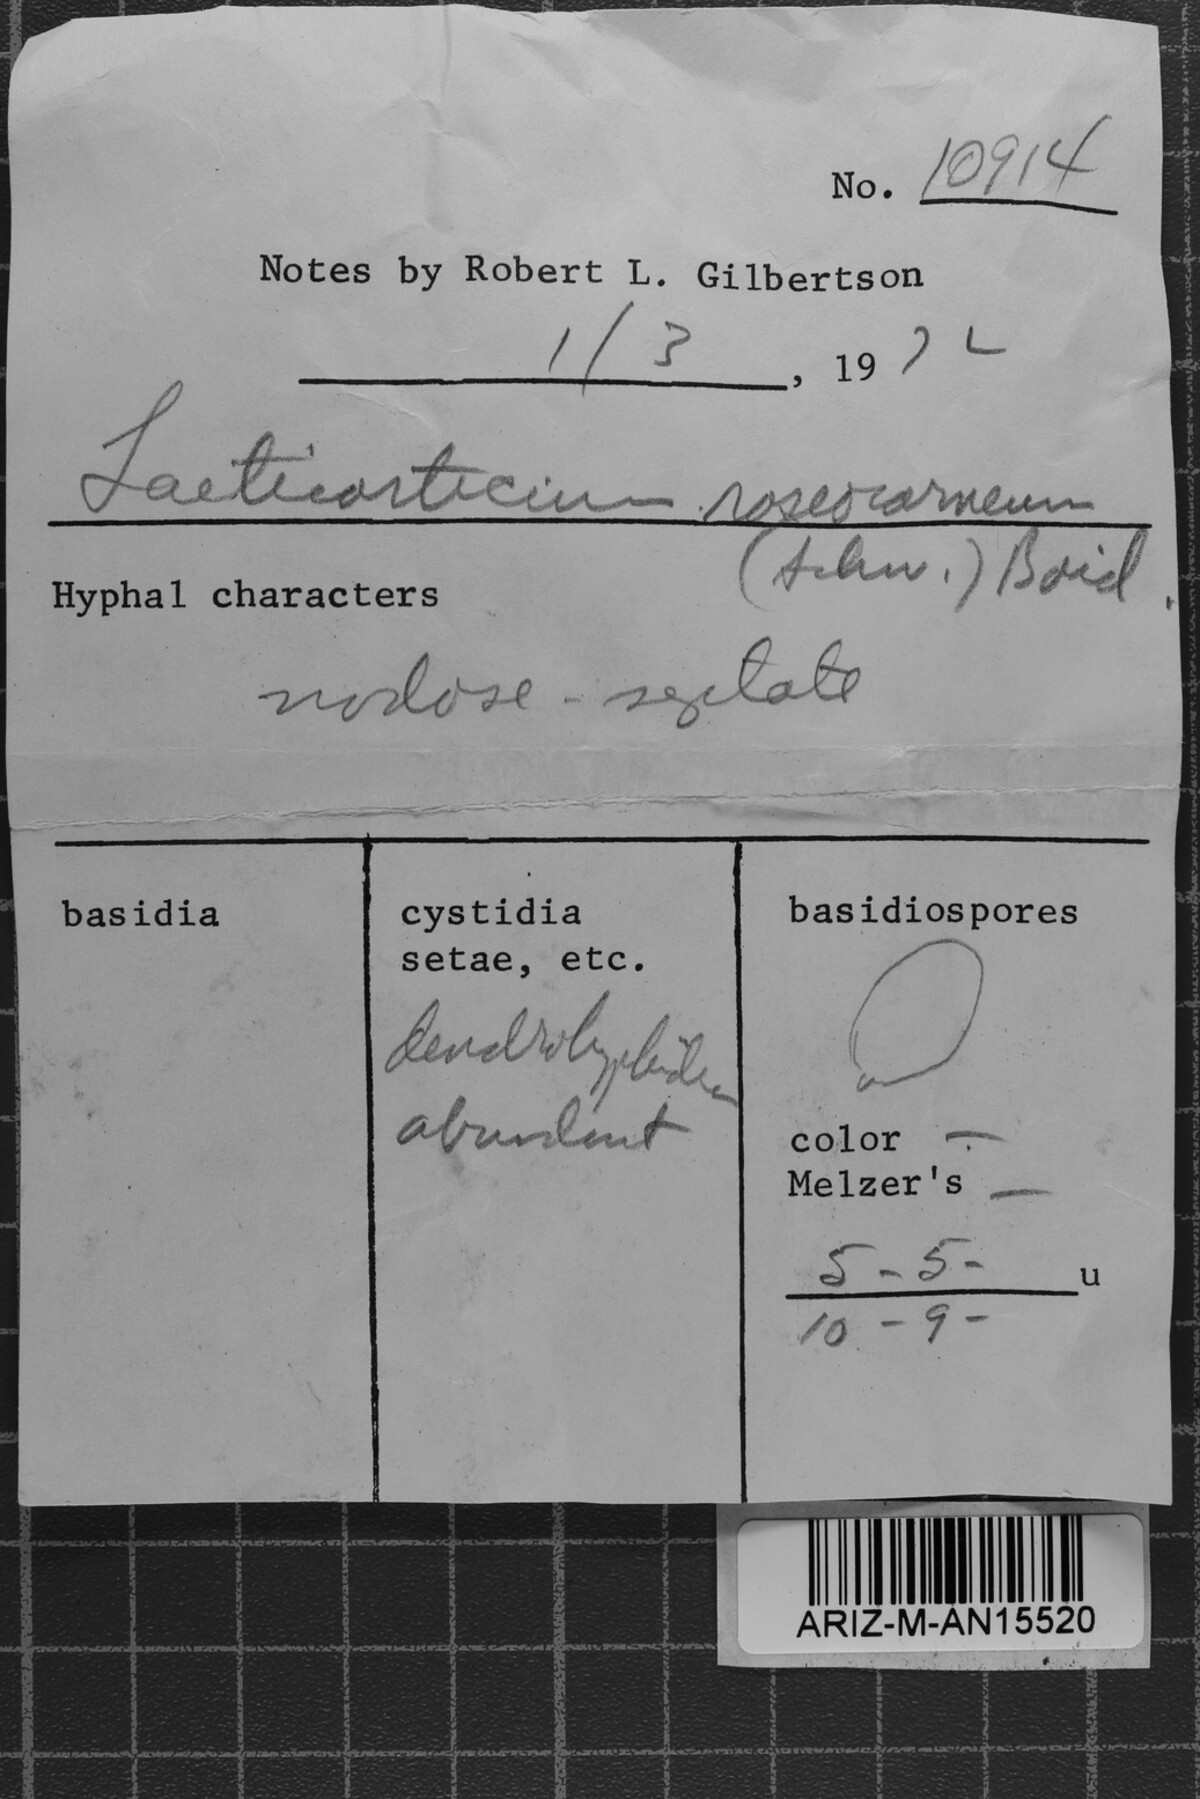 No. 10914
Notes by Robert L. Gilbertson
1/3, 1972
Laeticorticium roseocarneum
(Schw.) Boid.
Hyphal characters
nodose-septate
basidia
cystidia
setae, etc.
dendrohyphidia
abundant
basidiospores
color -
Melzer's -
5 - 5 - u
10 - 9 -
ARIZ-M-AN15520